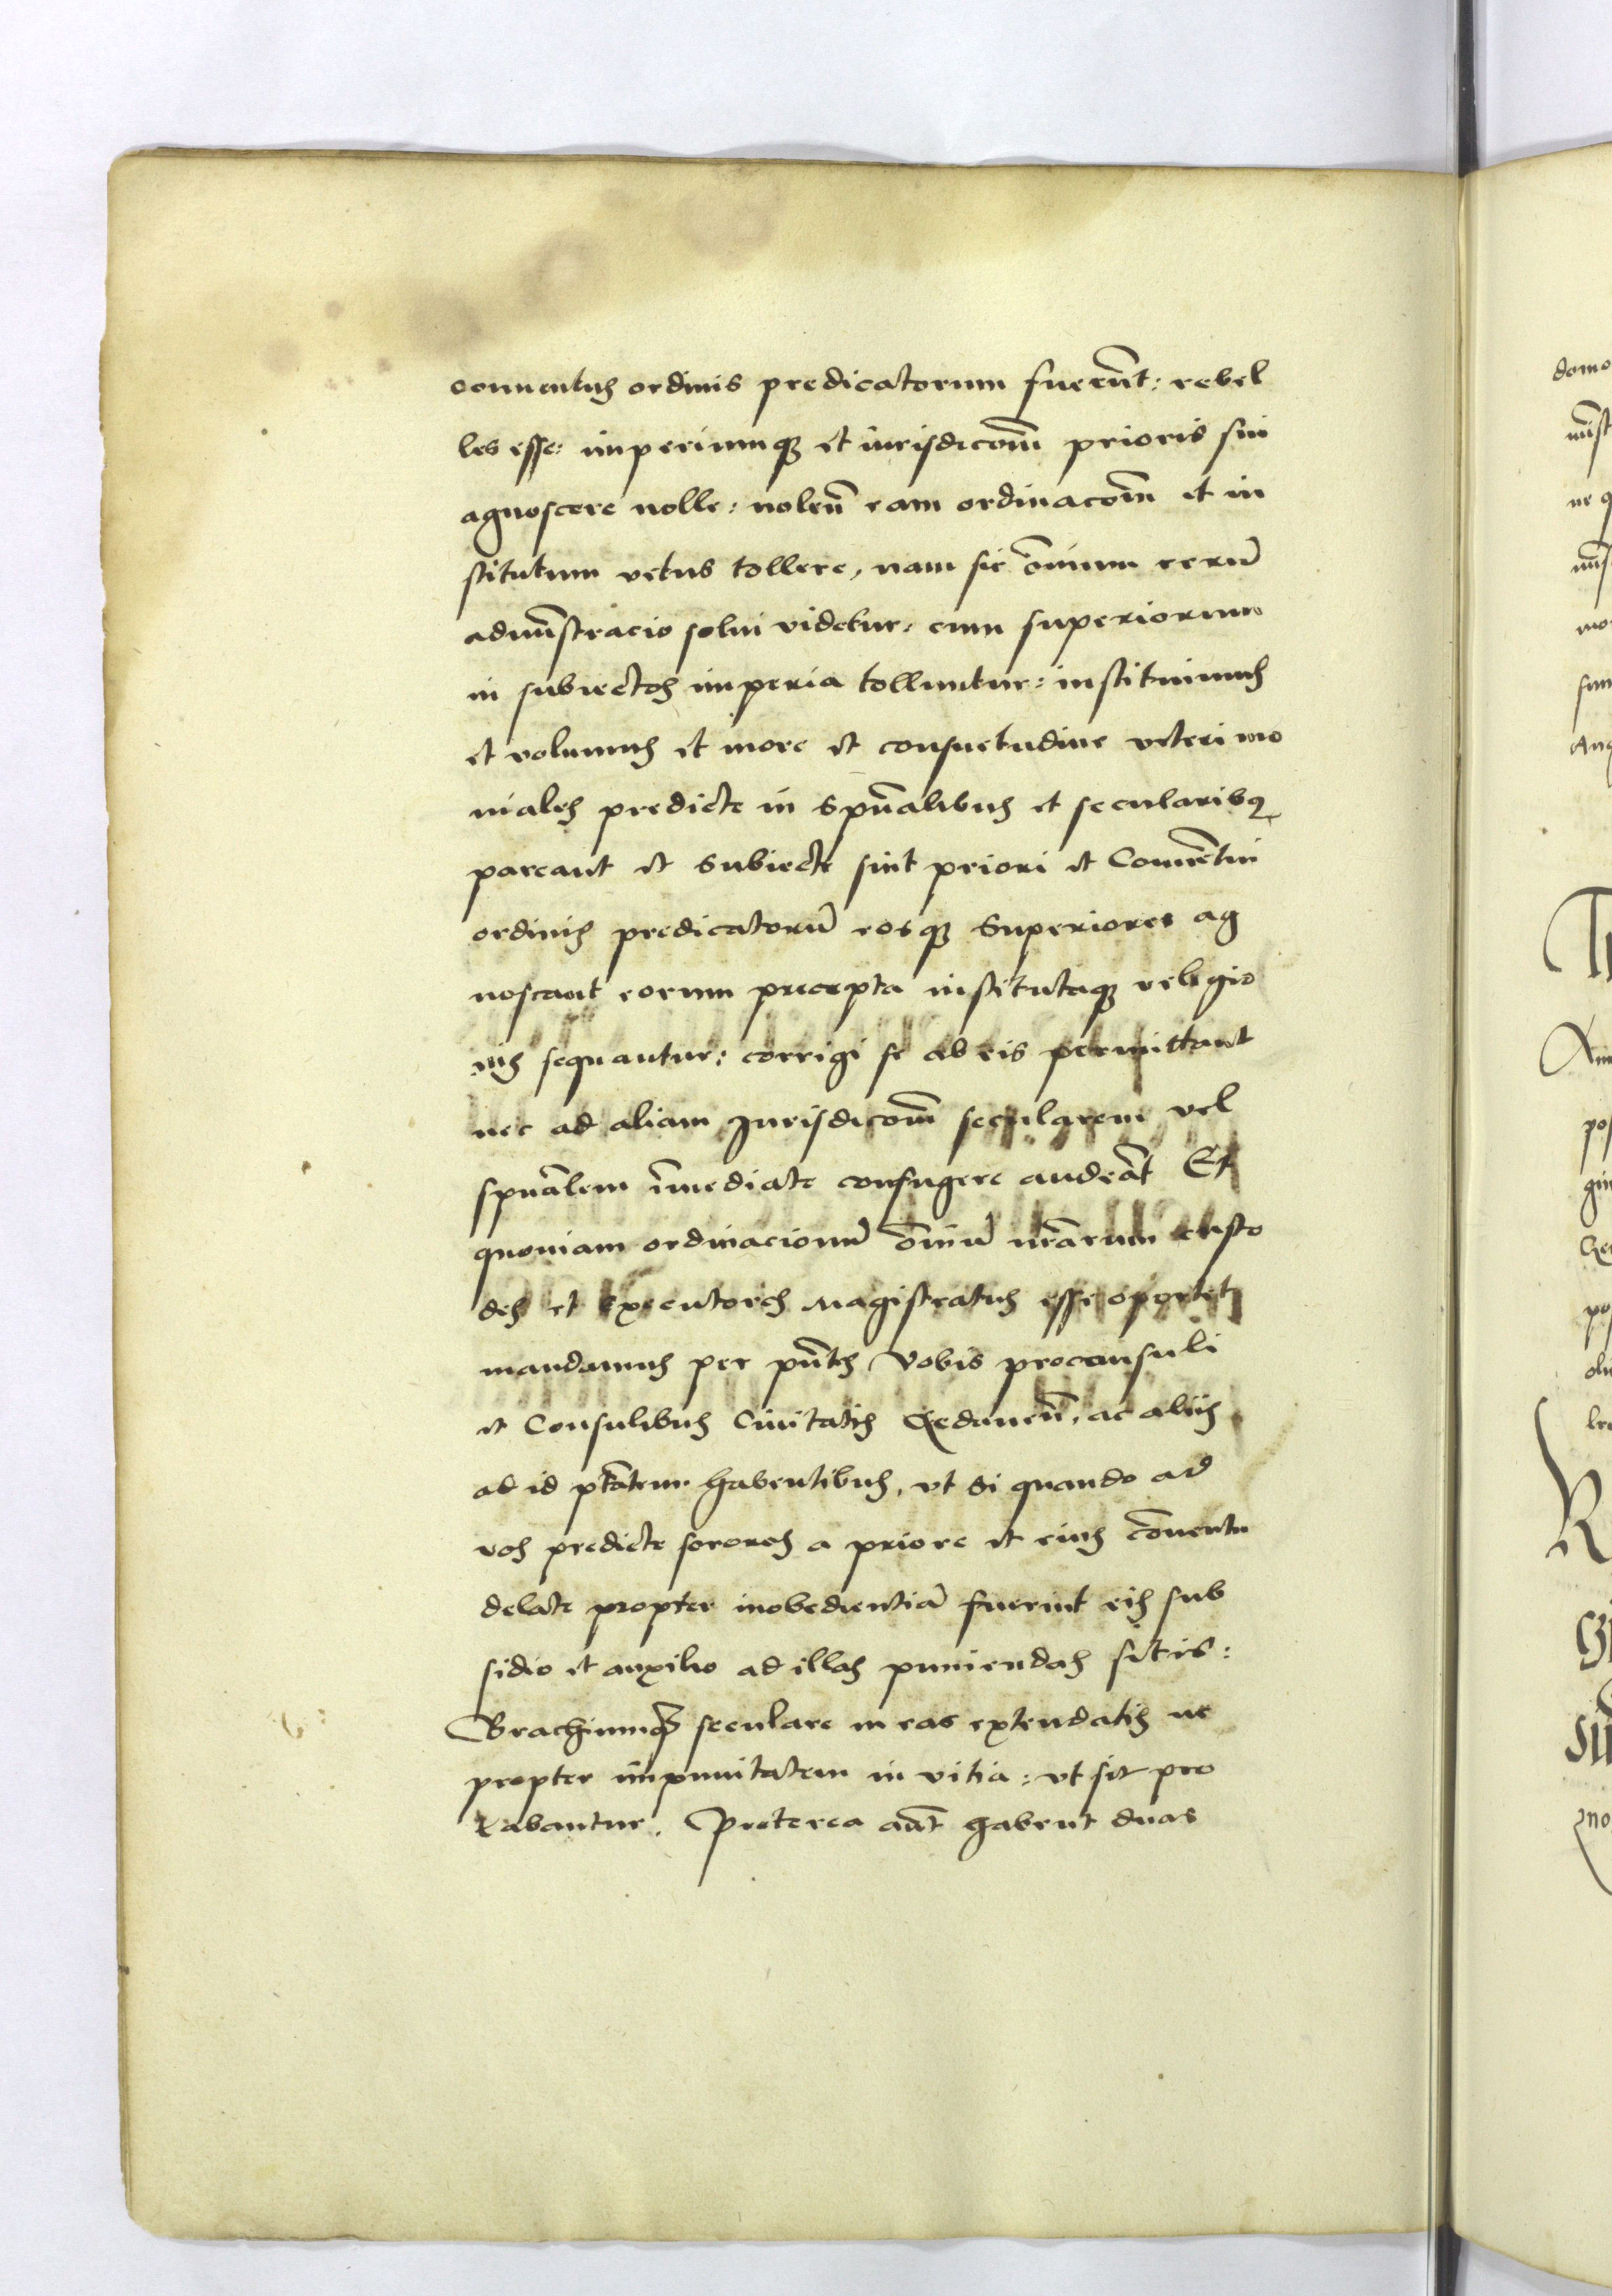 conuentus ordinis predicatorum fuerūt: rebel
les esse: imperiumq̄ et iurisdicōm̄ prioris sui
agnoscere nolle: nolen̄ eam ordinacōm̄ et in
stitutum vetus tollere, nam sic ōmnium rerū
admīnstracio solui videtur, cum superiorum
in subiectos imperia tolluntur: instituimus
et volumus et more et consuetudine veteri mo
niales predicte in Spūalibus et secularibꝰ
pareant et Subiecte sint priori et Conuētui
ordinis predicatorū eosq̄ Superiores ag
noscant eorum precepta institutaq̄ religio
nis sequantur: corrigi se ab eis permittant
nec ad aliam Jurisdicōm̄ secularem vel
spūalem īmediate confugere audeāt Et
quoniam ordinacionū ōmniū nr̄arum custo
des et Executores Magistratus esse oportet
mandamus per pn̄tes Vobis proconsuli
et Consulibus Ciuitatis Gedanen̄, ac aliis
ad id ptātem habentibus, vt si quando ad
vos predicte sorores a priore et eius cōuentu
delate propter inobedientiā fuerint eis sub
sidio et auxilio ad illas puniendas sitis:
Brachiumq̄ seculare in eas extendatis ne
propter impunitatem in vitia: vt fit pro
labantur. Preterea aūt habent duas
domo